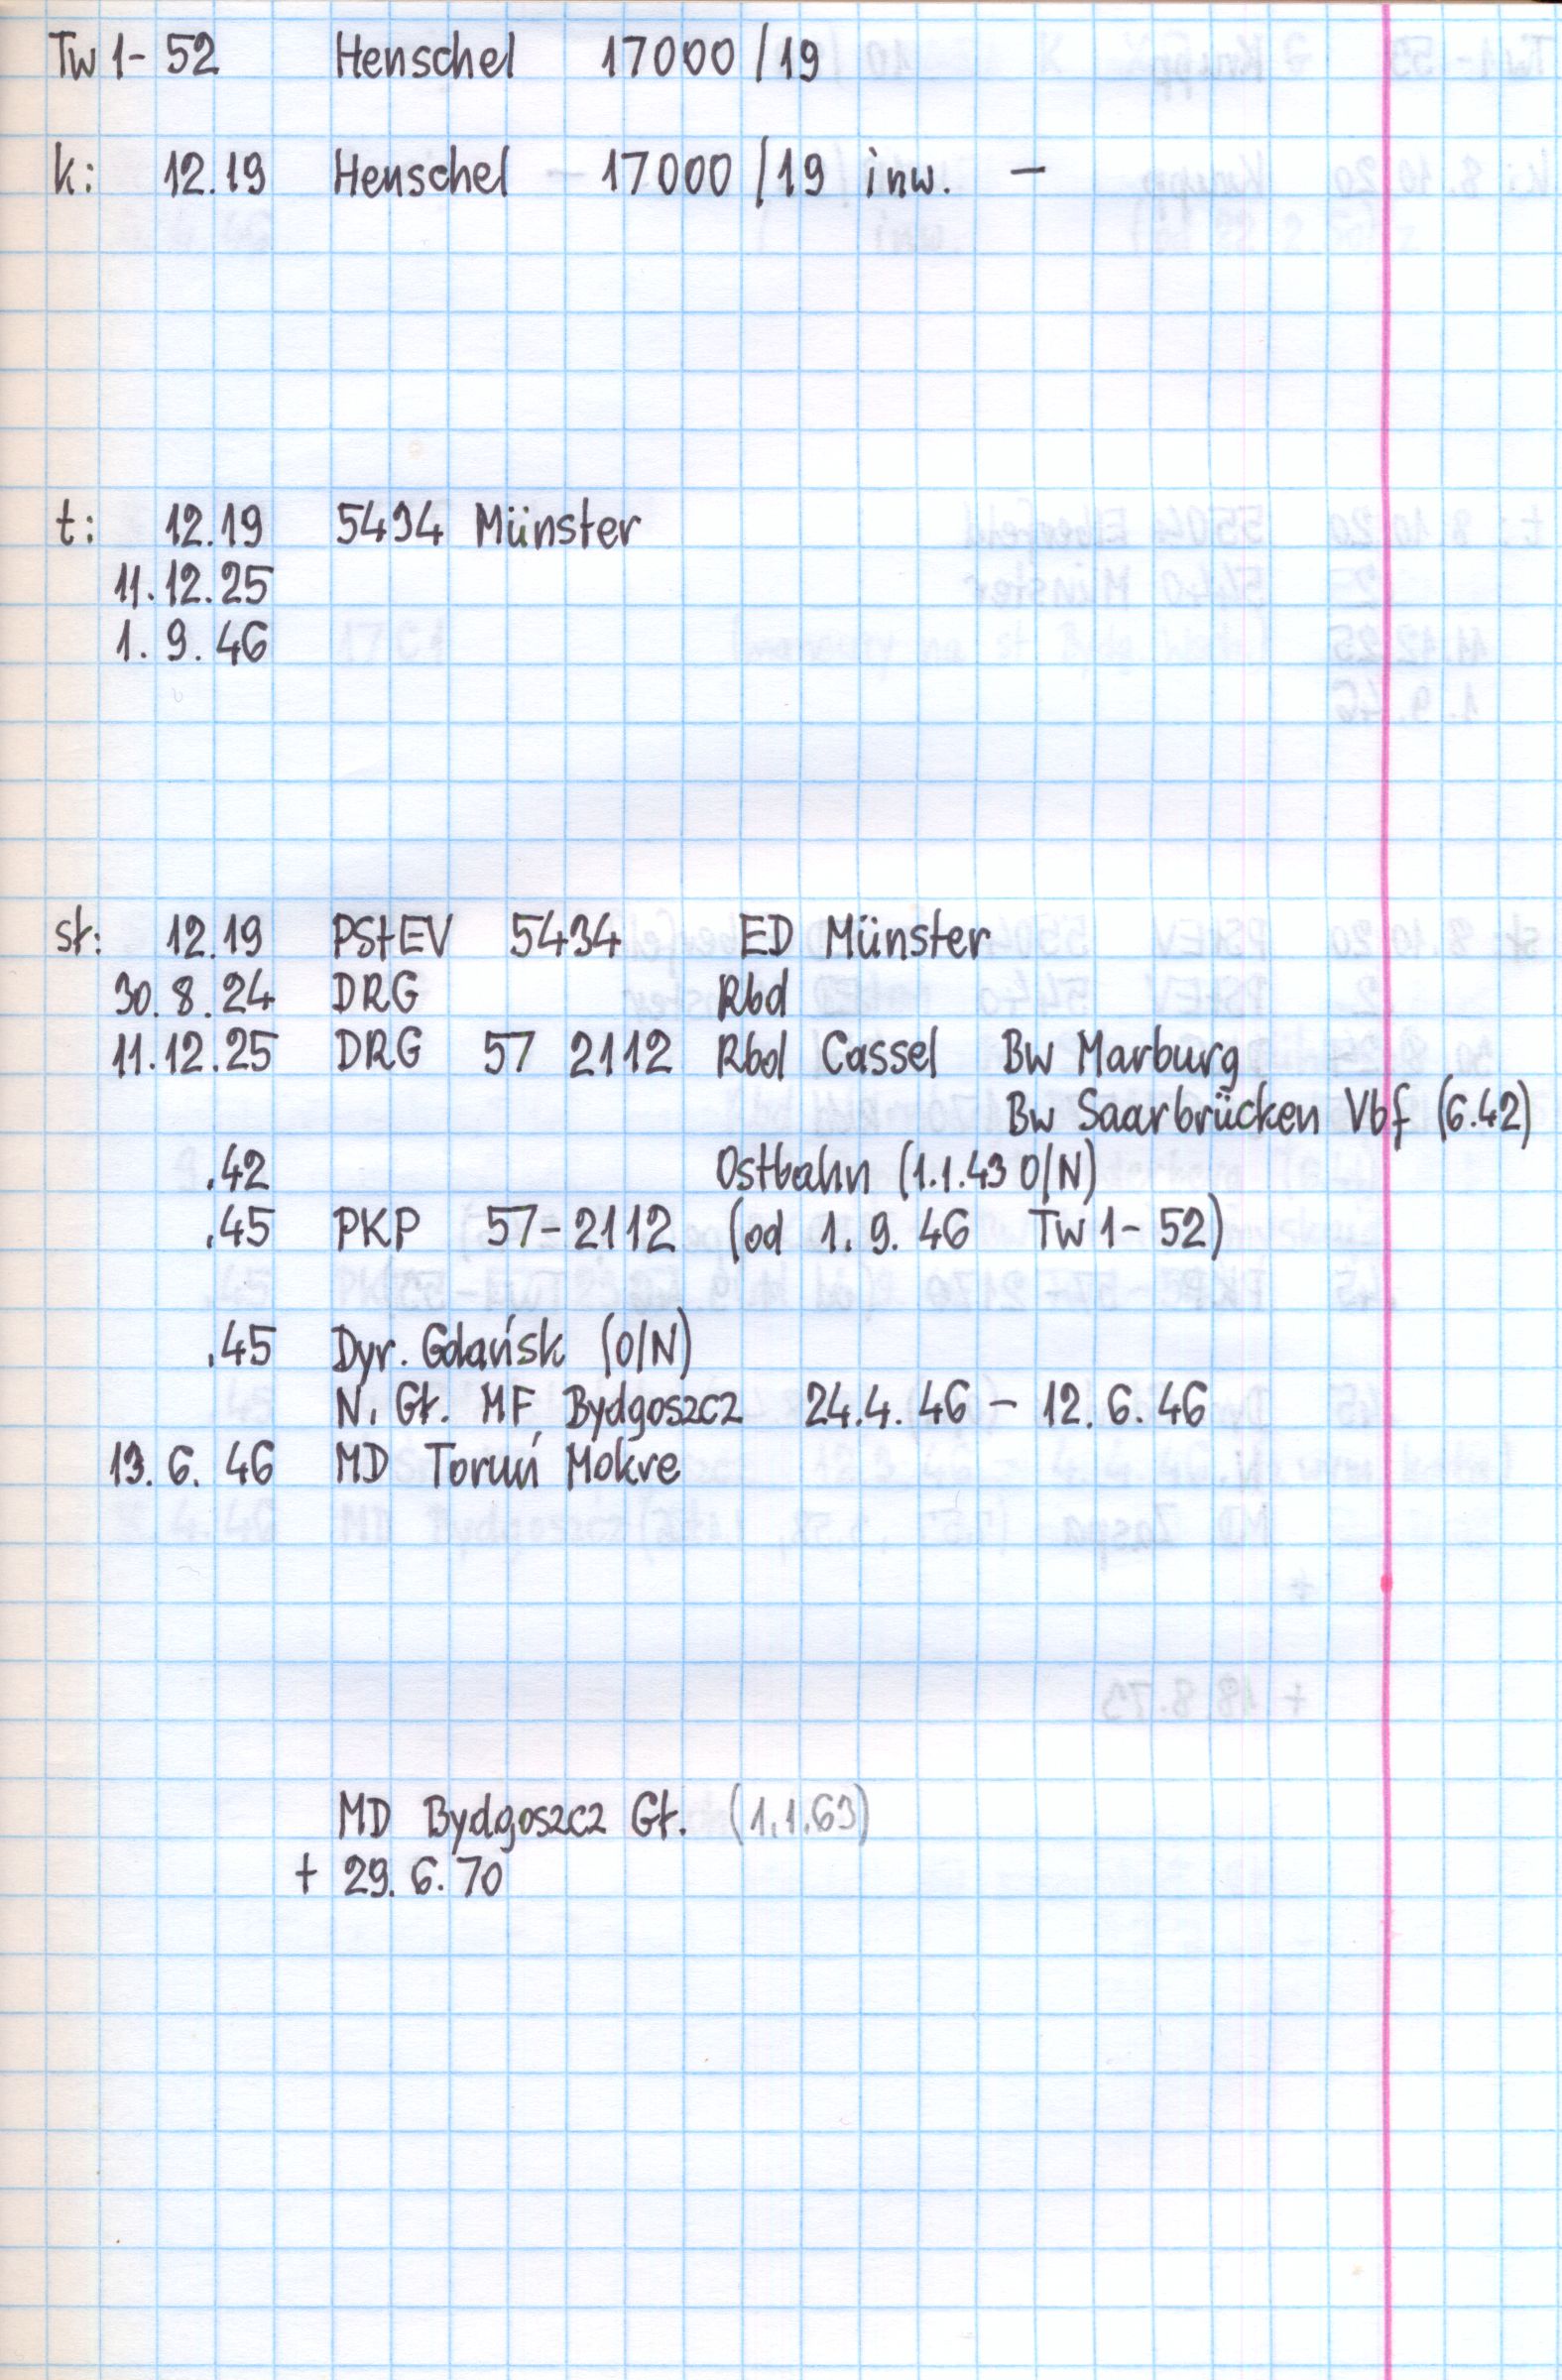 Tw 1-52 Henschel 17000/19
k: 12.19 Henschel - 17000/19 inw. -
t: 12.19 5434 Münster
11.12.25
1.9.46
st: 12.19 PStEV 5434 ED Münster
30.8.24 DRG Rbd
11.12.25 DRG 57 2112 Rbd Cassel Bw Marburg
Bw Saarbrücken Vbf (6.42)
.42 Ostbahn (1.1.43 O/N)
.45 PKP 57-2112 (od 1.9.46 Tw 1-52)
.45 Dyr. Gdańsk (O/N)
N. Gł. MF Bydgoszcz 24.4.46 - 12.6.46
13.6.46 MD Toruń Mokre
MD Bydgoszcz Gł. (1.1.63)
+ 29.6.70